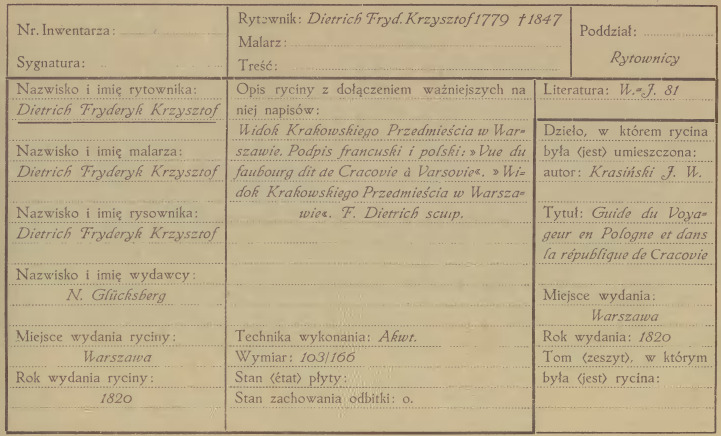 Nr. Inwentarza:
Sygnatura:
Rytownik: Dietrich Fryd. Krzysztof 1779 †1847
Malarz:
Treść:
Poddział:
Rytownicy
Nazwisko i imię rytownika:
Dietrich Fryderyk Krzysztof
Nazwisko i imię malarza:
Dietrich Fryderyk Krzysztof
Nazwisko i imię rysownika:
Dietrich Fryderyk Krzysztof
Nazwisko i imię wydawcy:
N. Glücksberg
Miejsce wydania ryciny:
Warszawa
Rok wydania ryciny:
1820
Opis ryciny z dołączeniem ważniejszych na
niej napisów:
Widok Krakowskiego Przedmieścia w War=
szawie. Podpis francuski i polski: »Vue du
faubourg dit de Cracovie à Varsovie«. »Wi=
dok Krakowskiego Przedmieścia w Warsza=
wie«. F. Dietrich sculp.
Technika wykonania: Akwt.
Wymiar: 103/166
Stan (état) płyty:
Stan zachowania odbitki: o.
Literatura: W.=J. 81
Dzieło, w którem rycina
była (jest) umieszczona:
autor: Krasiński J. W.
Tytuł: Guide du Voya=
geur en Pologne et dans
la république de Cracovie
Miejsce wydania:
Warszawa
Rok wydania: 1820
Tom (zeszyt), w którym
była (jest) rycina: